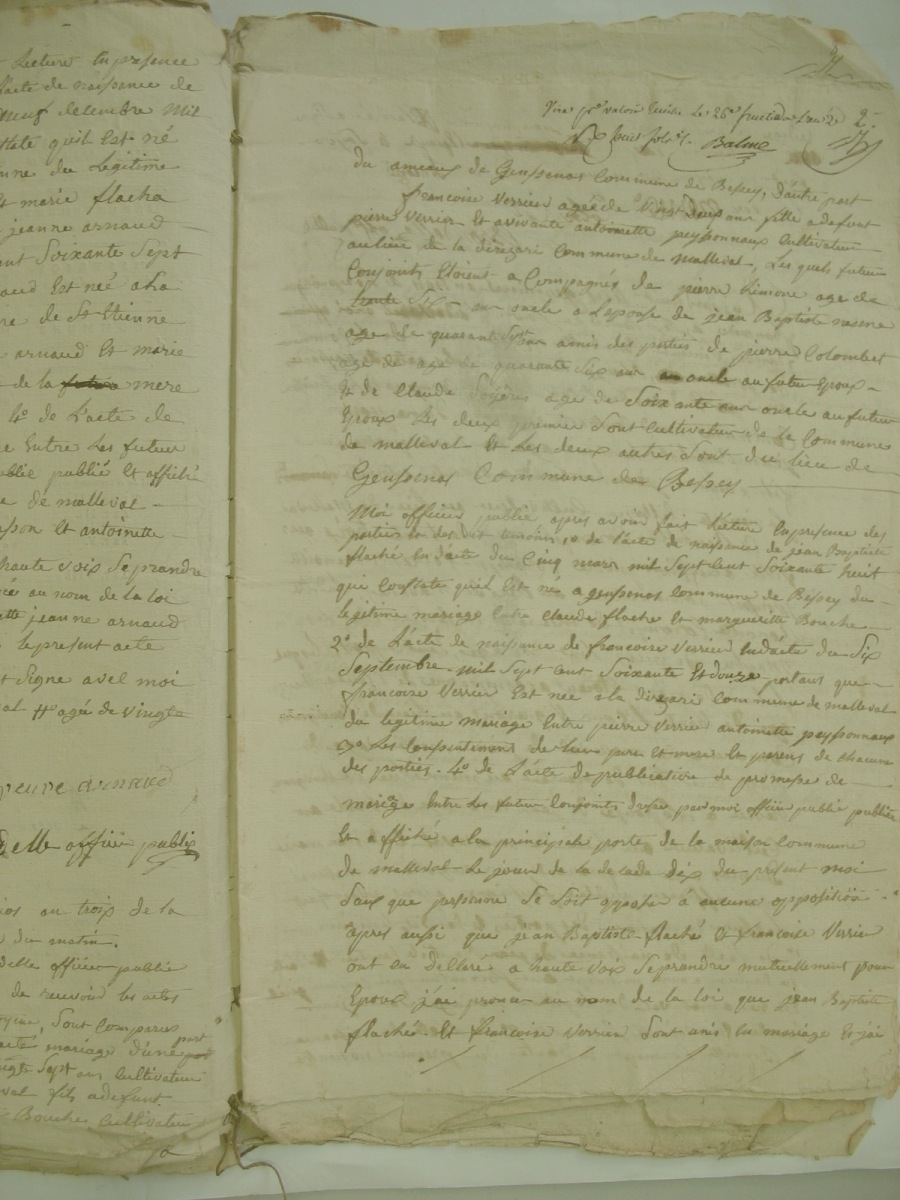 Lecture en presence
l'acte de naissance de
neuf decembre mil
qu'il Est né
du Legitime
Et marie flacha
jeanne arnaud
Soixante Sept
Est né a la
de St Etienne
arnaud Et marie
de la futur mere
4º de L'acte de
Entre Les futeur
publié Et affiché
de malleval
Et antoinette
haute voix Se prandre
au nom de la loi
jeanne arnaud
le present acte
Signe avec moi
agée de vingte
arnaud
officier public
au trois de la
du matin.
officier public
de recevoir les actes
Sont Comparus
mariage d'une part
Sept ans Cultivateur
fils a defunt
Bouche Cultivateur
2.
Balme
du ameaux de Geussenas Commune de Bessey, d'autre part
francoise Verrier agée de Vingt deux ans fille a defunt
pierre Verrier Et avivante antoinette peyssonnaux Cultivateur
au lieu de la direzari Commune de malleval, Les quels futeur
Conjoints Etoient a Compagnés de pierre Limone age de
trante Six ans oncle a Lepouse de jean Baptiste
age de quarant Sept ans amis des parties de pierre Colombet
age de age de quarante Six ans an oncle au futur Epoux
Et de Claude age de Soixante ans oncle au futeur
Epoux Les deux premier Sont Cultivateur de la Commune
de malleval Et Les deux autres Sont du lieu de
Geussenas Commune de Bessey
Moi officier public apres avoir fait Lecture En presence des
parties Et des dit temoins 1º de l'acte de naissance de jean Baptiste
flaché, En date du Cinq mars mil Sept Cent Soixante huit
qui Constate qu'il Est né a geussenas Commune de Bessey du
legitime mariage Entre Claude flache et marguerite Bouche
2º de L'acte de naissance de francoise Verrier En date du Six
Septembre mil Sept Cent Soixante Et douze portant que
francoise Verrier Est née a la direzari Commune de malleval
du legitime mariage Entre pierre Verrier antoinette peyssonnaux
3º Les Consentement de leur pere Et mere Et parens de chacune
des parties. 4º de L'acte de publication de promesse de
mariage Entre Les futur Conjoints dressé par moi officier public publiée
Et affiché a la principale porte de la maison Commune
de malleval Le jour de la decade dix du present moi
Sans que personne Se Soit oppose à aucune opposition
apres aussi que jean Baptiste flaché Et francoise Verrier
ont Eu declaré a haute voix Se prandre mutuellement pour
Epoux j'ai prononcé au nom de la loi que jean Baptiste
flaché Et francoise Verrier Sont unis En mariage Et j'ai